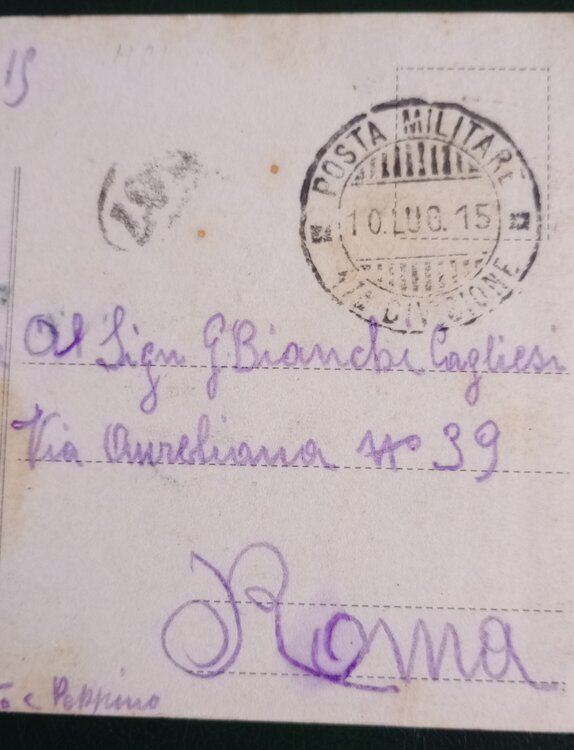 15
POSTA MILITARE
10.LUG.15
DIVISIONE
Al Sign G Bianchi Cagliesi
Via Aureliana No 39
Roma
e Peppino